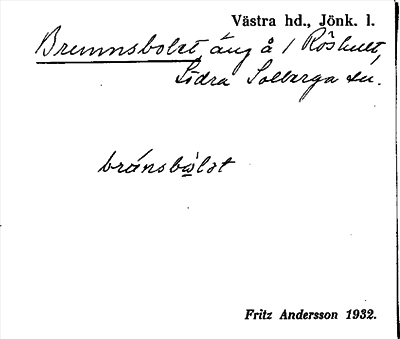 Västra hd., Jönk. l.
Bremnsbolet äng å 1 Röshult,
Södra Solberga sn.
bránsbὼlət
Fritz Andersson 1932.